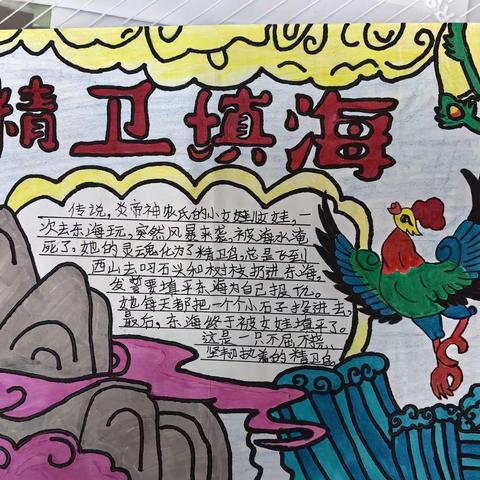 精卫填海
传说,炎帝神农氏的小女娃女娃,一
次去东海玩,突然风暴来袭,被海水淹
死了,她的灵魂化为了精卫鸟,总是飞到
西山去叼石头和树枝扔进东海,
发誓要填平东海为自己报仇。
她每天都把一个个小石子投进去,
最后,东海终于被女娃填平了。
这是一只不屈不挠、
坚韧执着的精卫鸟。